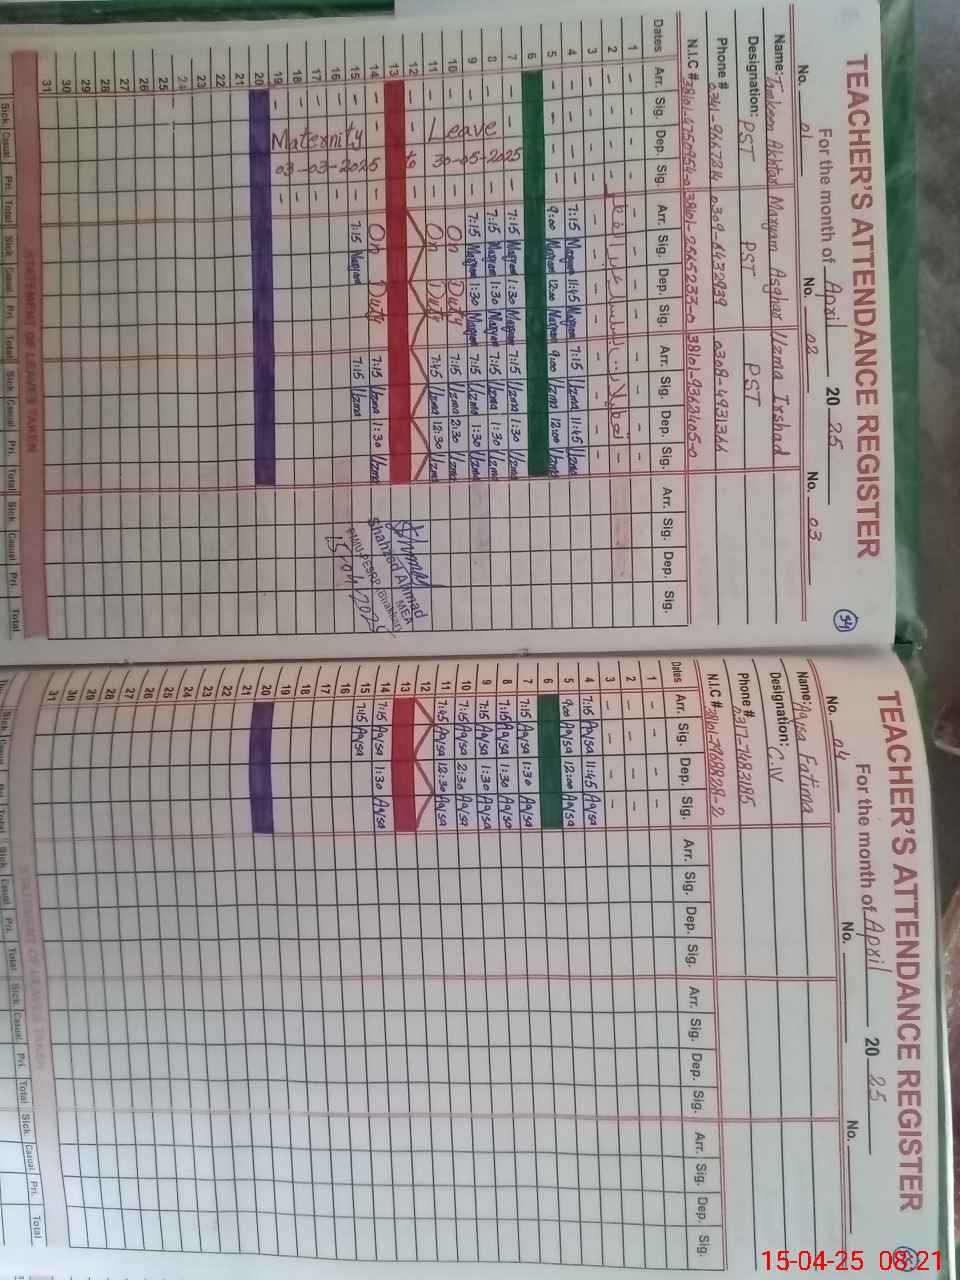 TEACHER'S ATTENDANCE REGISTER
54
For the month of April 2025
No. 01 No. 02 No. 03
Name: Tamkeen Akhtar Maryam Asghar Uzma Irshad
Designation: PST PST PST
Phone # 0341-9667214 0309-6432939 0308-4931364
N.I.C # 38101-4750954-0 38101-2565233-0 38101-9362405-0
Dates Arr. Sig. Dep. Sig. Arr. Sig. Dep. Sig. Arr. Sig. Dep. Sig. Arr. Sig. Dep. Sig.
1 - - - -
2 - - - -
3 - - - - - -
4 - - - - 7:15 Maryam 11:45 Maryam 7:15 Uzma 11:45 Uzma
5 - - - - 9:00 Maryam 12:00 Maryam 9:00 Uzma 12:00 Uzma
6
7 - - - - 7:15 Maryam 1:30 Maryam 7:15 Uzma 1:30 Uzma
8 - - 7:15 Maryam 1:30 Maryam 7:15 Uzma 1:30 Uzma
9 - - 7:15 Maryam 1:30 Maryam 7:15 Uzma 1:30 Uzma
10 - - On Duty 7:15 Uzma 2:30 Uzma
11 - - On Duty 7:45 Uzma 12:30 Uzma
12
13
14 - - On Duty 7:15 Uzma 1:30 Uzma
15 - - 7:15 Maryam 7:15 Uzma
16
17
18
19
20
21
22
23
24
25
26
27
28
29
30
31
Maternity Leave
03-03-2025 to 30-05-2025
Shahzad Ahmad
MEA
PMIU-PESRP (Bhakkar)
15/04/2025
STATEMENT OF LEAVES TAKEN
Sick Casual Pri. Total Sick. Casual Pri. Total Sick. Casual Pri. Total Sick. Casual Pri. Total
TEACHER'S ATTENDANCE REGISTER
For the month of April 2025
No. 04 No. No.
Name: Aqsa Fatima
Designation: C.IV
Phone # 0317-7483185
N.I.C # 38101-7968828-2
Dates Arr. Sig. Dep. Sig. Arr. Sig. Dep. Sig. Arr. Sig. Dep. Sig. Arr. Sig. Dep. Sig.
1 - - - -
2 - - - -
3 - - - -
4 7:15 Aqsa 11:45 Aqsa
5 9:00 Aqsa 12:00 Aqsa
6
7 7:15 Aqsa 1:30 Aqsa
8 7:15 Aqsa 1:30 Aqsa
9 7:15 Aqsa 1:30 Aqsa
10 7:15 Aqsa 2:30 Aqsa
11 7:45 Aqsa 12:30 Aqsa
12
13
14 7:15 Aqsa 1:30 Aqsa
15 7:15 Aqsa
16
17
18
19
20
21
22
23
24
25
26
27
28
29
30
31
STATEMENT OF LEAVES TAKEN
Total Sick. Casual. Pri. Total Sick. Casual. Pri. Total
15-04-25 08:21